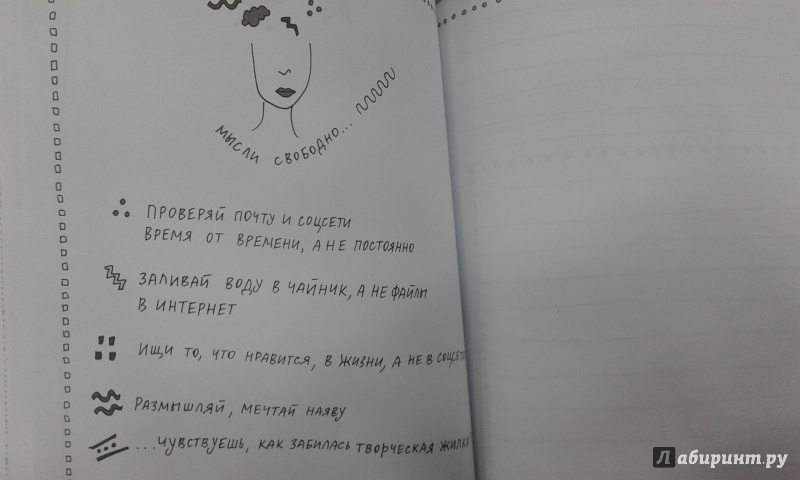 МЫСЛИ СВОБОДНО...
ПРОВЕРЯЙ ПОЧТУ И СОЦСЕТИ
ВРЕМЯ ОТ ВРЕМЕНИ, А НЕ ПОСТОЯННО
ЗАЛИВАЙ ВОДУ В ЧАЙНИК, А НЕ ФАЙЛЫ
В ИНТЕРНЕТ
ИЩИ ТО, ЧТО НРАВИТСЯ, В ЖИЗНИ, А НЕ В СОЦСЕТЯ
РАЗМЫШЛЯЙ, МЕЧТАЙ НАЯВУ
...ЧУВСТВУЕШЬ, КАК ЗАБИЛАСЬ ТВОРЧЕСКАЯ ЖИЛКА
Лабиринт.ру